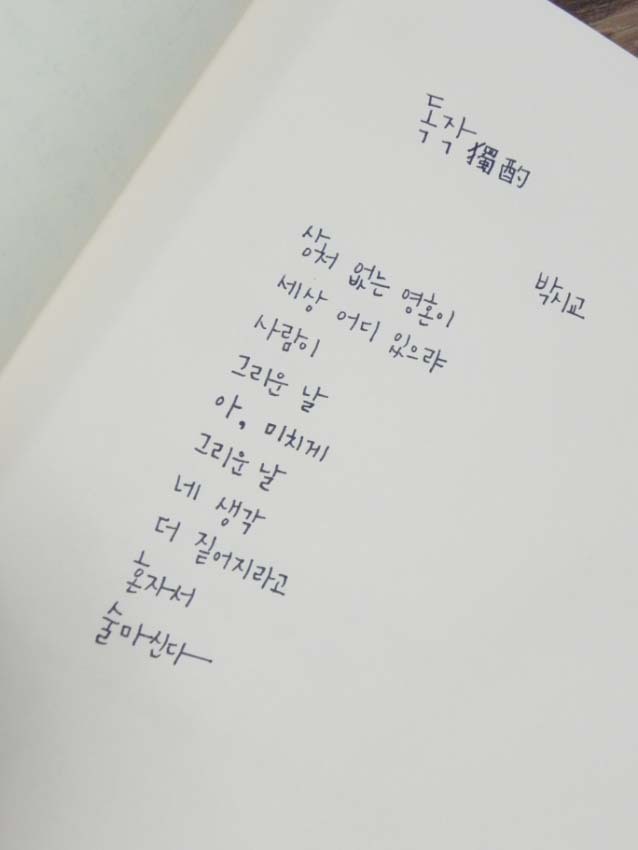 독작 獨酌
박시교
상처 없는 영혼이
세상 어디 있으랴
사람이
그리운 날
아, 미치게
그리운 날
네 생각
더 짙어지라고
혼자서
술마신다